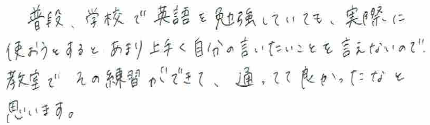 普段、学校で英語を勉強していても、実際に
使おうとするとあまり上手く自分の言いたいことを言えないので、
教室でその練習ができて、通ってて良かったなと
思います。